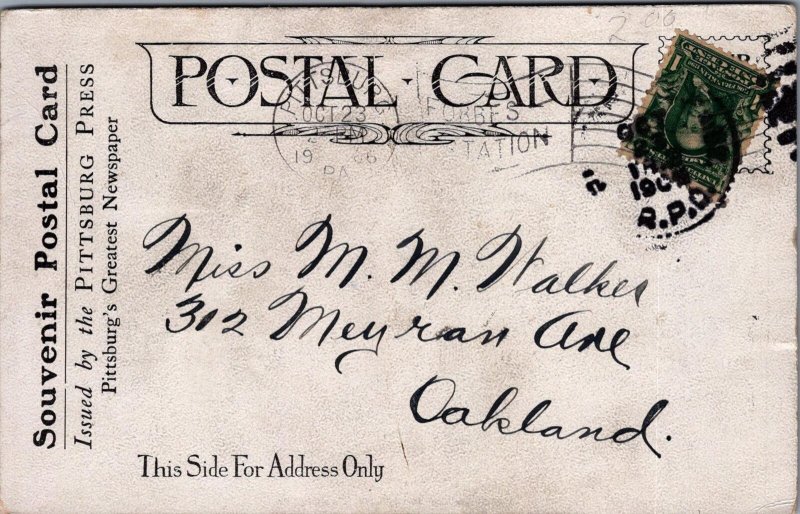 2.00
POSTAL CARD
PITTSBURG
OCT 23
19 06
PA.
FORBES
STATION
R.P.O.
Souvenir Postal Card
Issued by the PITTSBURG PRESS
Pittsburg's Greatest Newspaper
Miss M. M. Walker
302 Meyran Ave
Oakland.
This Side For Address Only